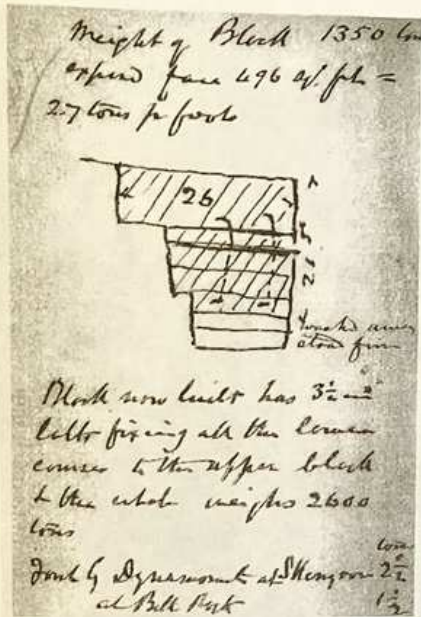 Weight of Block 1350 tons
exposed face 496 sq. ft. =
2.7 tons pr foot
26
7
5
21
stood firm
Block now built has 3½ in
bolts fixing all the lower
courses to the upper block
& the whole weighs 2600
tons
tons
Force of Dynamometer at 2½
at Bell Rock 1½